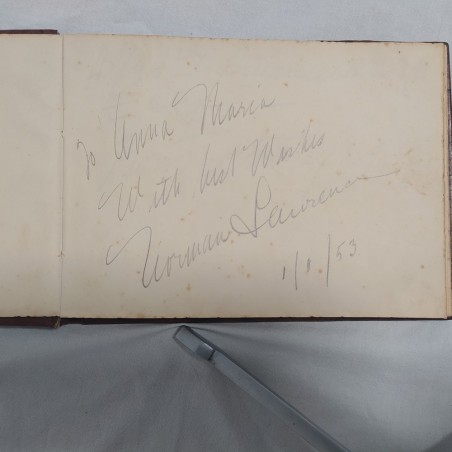 To Anna Maria
With best Wishes
Norman Lawrence
1/1/53